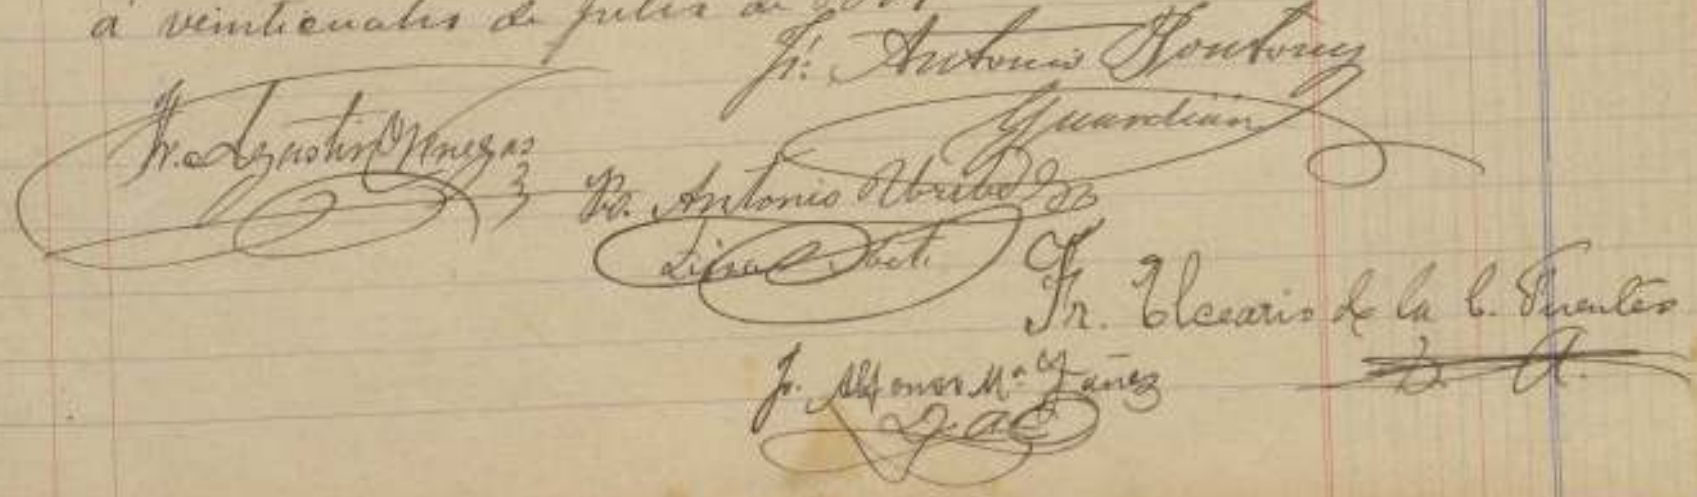 á veinticuatro de Julio de
Fr. Antonio
Guardián
Fr. Agustin Venegas
Fr. Antonio Uribe
Fr. Elceario de la C. Fuentes
D. A.
Fr. Alfonso Mª Yáñez
D. A.